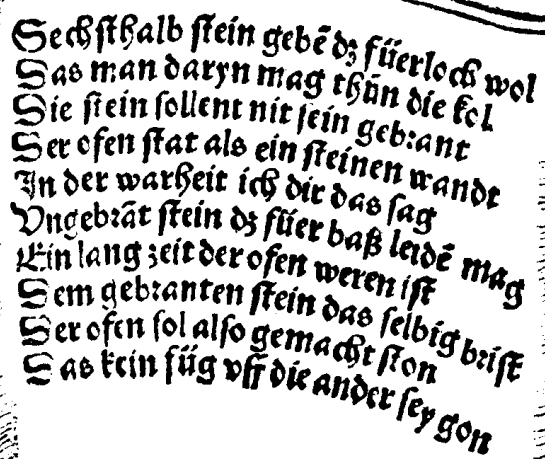 Sechsthalb stein gebē dz füerloch wol
Das man daryn mag thůn die kol
Die stein sollent nit sein gebrant
Der ofen stat als ein steinen wandt
In der warheit ich dir das sag
Vngebrāt stein dz füer baß leidē mag
Ein lang zeit der ofen weren ist
Dem gebranten stein das selbig brist
Der ofen sol also gemacht ston
Das kein füg vff die ander sey gon